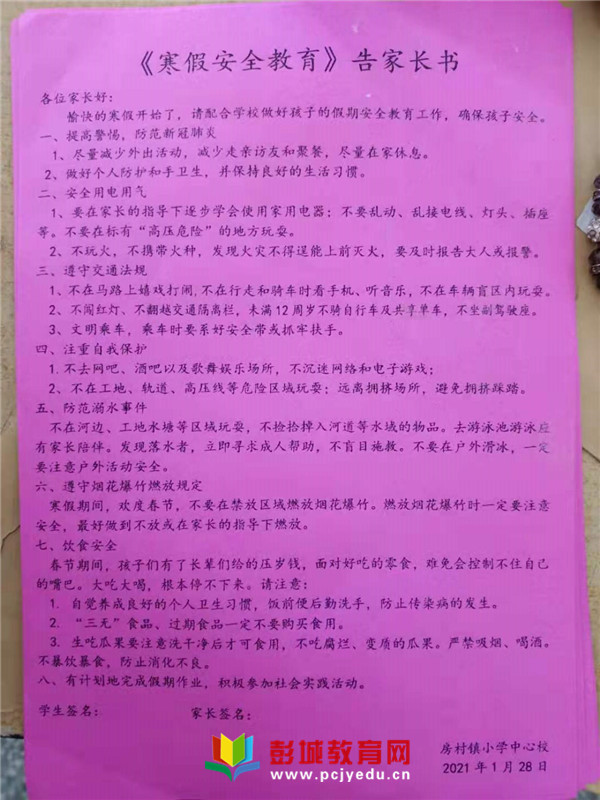 《寒假安全教育》告家长书
各位家长好：
愉快的寒假开始了，请配合学校做好孩子的假期安全教育工作，确保孩子安全。
一、提高警惕，防范新冠肺炎
1、尽量减少外出活动，减少走亲访友和聚餐，尽量在家休息。
2、做好个人防护和手卫生，并保持良好的生活习惯。
二、安全用电用气
1、要在家长的指导下逐步学会使用家用电器；不要乱动、乱接电线、灯头、插座
等。不要在标有“高压危险”的地方玩耍。
2、不玩火，不携带火种，发现火灾不得逞能上前灭火，要及时报告大人或报警。
三、遵守交通法规
1、不在马路上嬉戏打闹，不在行走和骑车时看手机、听音乐，不在车辆盲区内玩耍。
2、不闯红灯、不翻越交通隔离栏，未满12周岁不骑自行车及共享单车，不坐副驾驶座。
3、文明乘车，乘车时要系好安全带或抓牢扶手。
四、注重自我保护
1、不去网吧、酒吧以及歌舞娱乐场所，不沉迷网络和电子游戏；
2、不在工地、轨道、高压线等危险区域玩耍；远离拥挤场所，避免拥挤踩踏。
五、防范溺水事件
不在河边、工地水塘等区域玩耍，不捡拾掉入河道等水域的物品。去游泳池游泳应
有家长陪伴。发现落水者，立即寻求成人帮助，不盲目施救。不要在户外滑冰，一定
要注意户外活动安全。
六、遵守烟花爆竹燃放规定
寒假期间，欢度春节，不要在禁放区域燃放烟花爆竹。燃放烟花爆竹时一定要注意
安全，最好做到不放或在家长的指导下燃放。
七、饮食安全
春节期间，孩子们有了长辈们给的压岁钱，面对好吃的零食，难免会控制不住自己
的嘴巴。大吃大喝，根本停不下来。请注意：
1. 自觉养成良好的个人卫生习惯，饭前便后勤洗手，防止传染病的发生。
2. “三无”食品、过期食品一定不要购买食用。
3. 生吃瓜果要注意洗干净后才可食用，不吃腐烂、变质的瓜果。严禁吸烟、喝酒。
不暴饮暴食，防止消化不良。
八、有计划地完成假期作业，积极参加社会实践活动。
学生签名： 家长签名：
房村镇小学中心校
2021年1月28日
彭城教育网
www.pcjyedu.cn